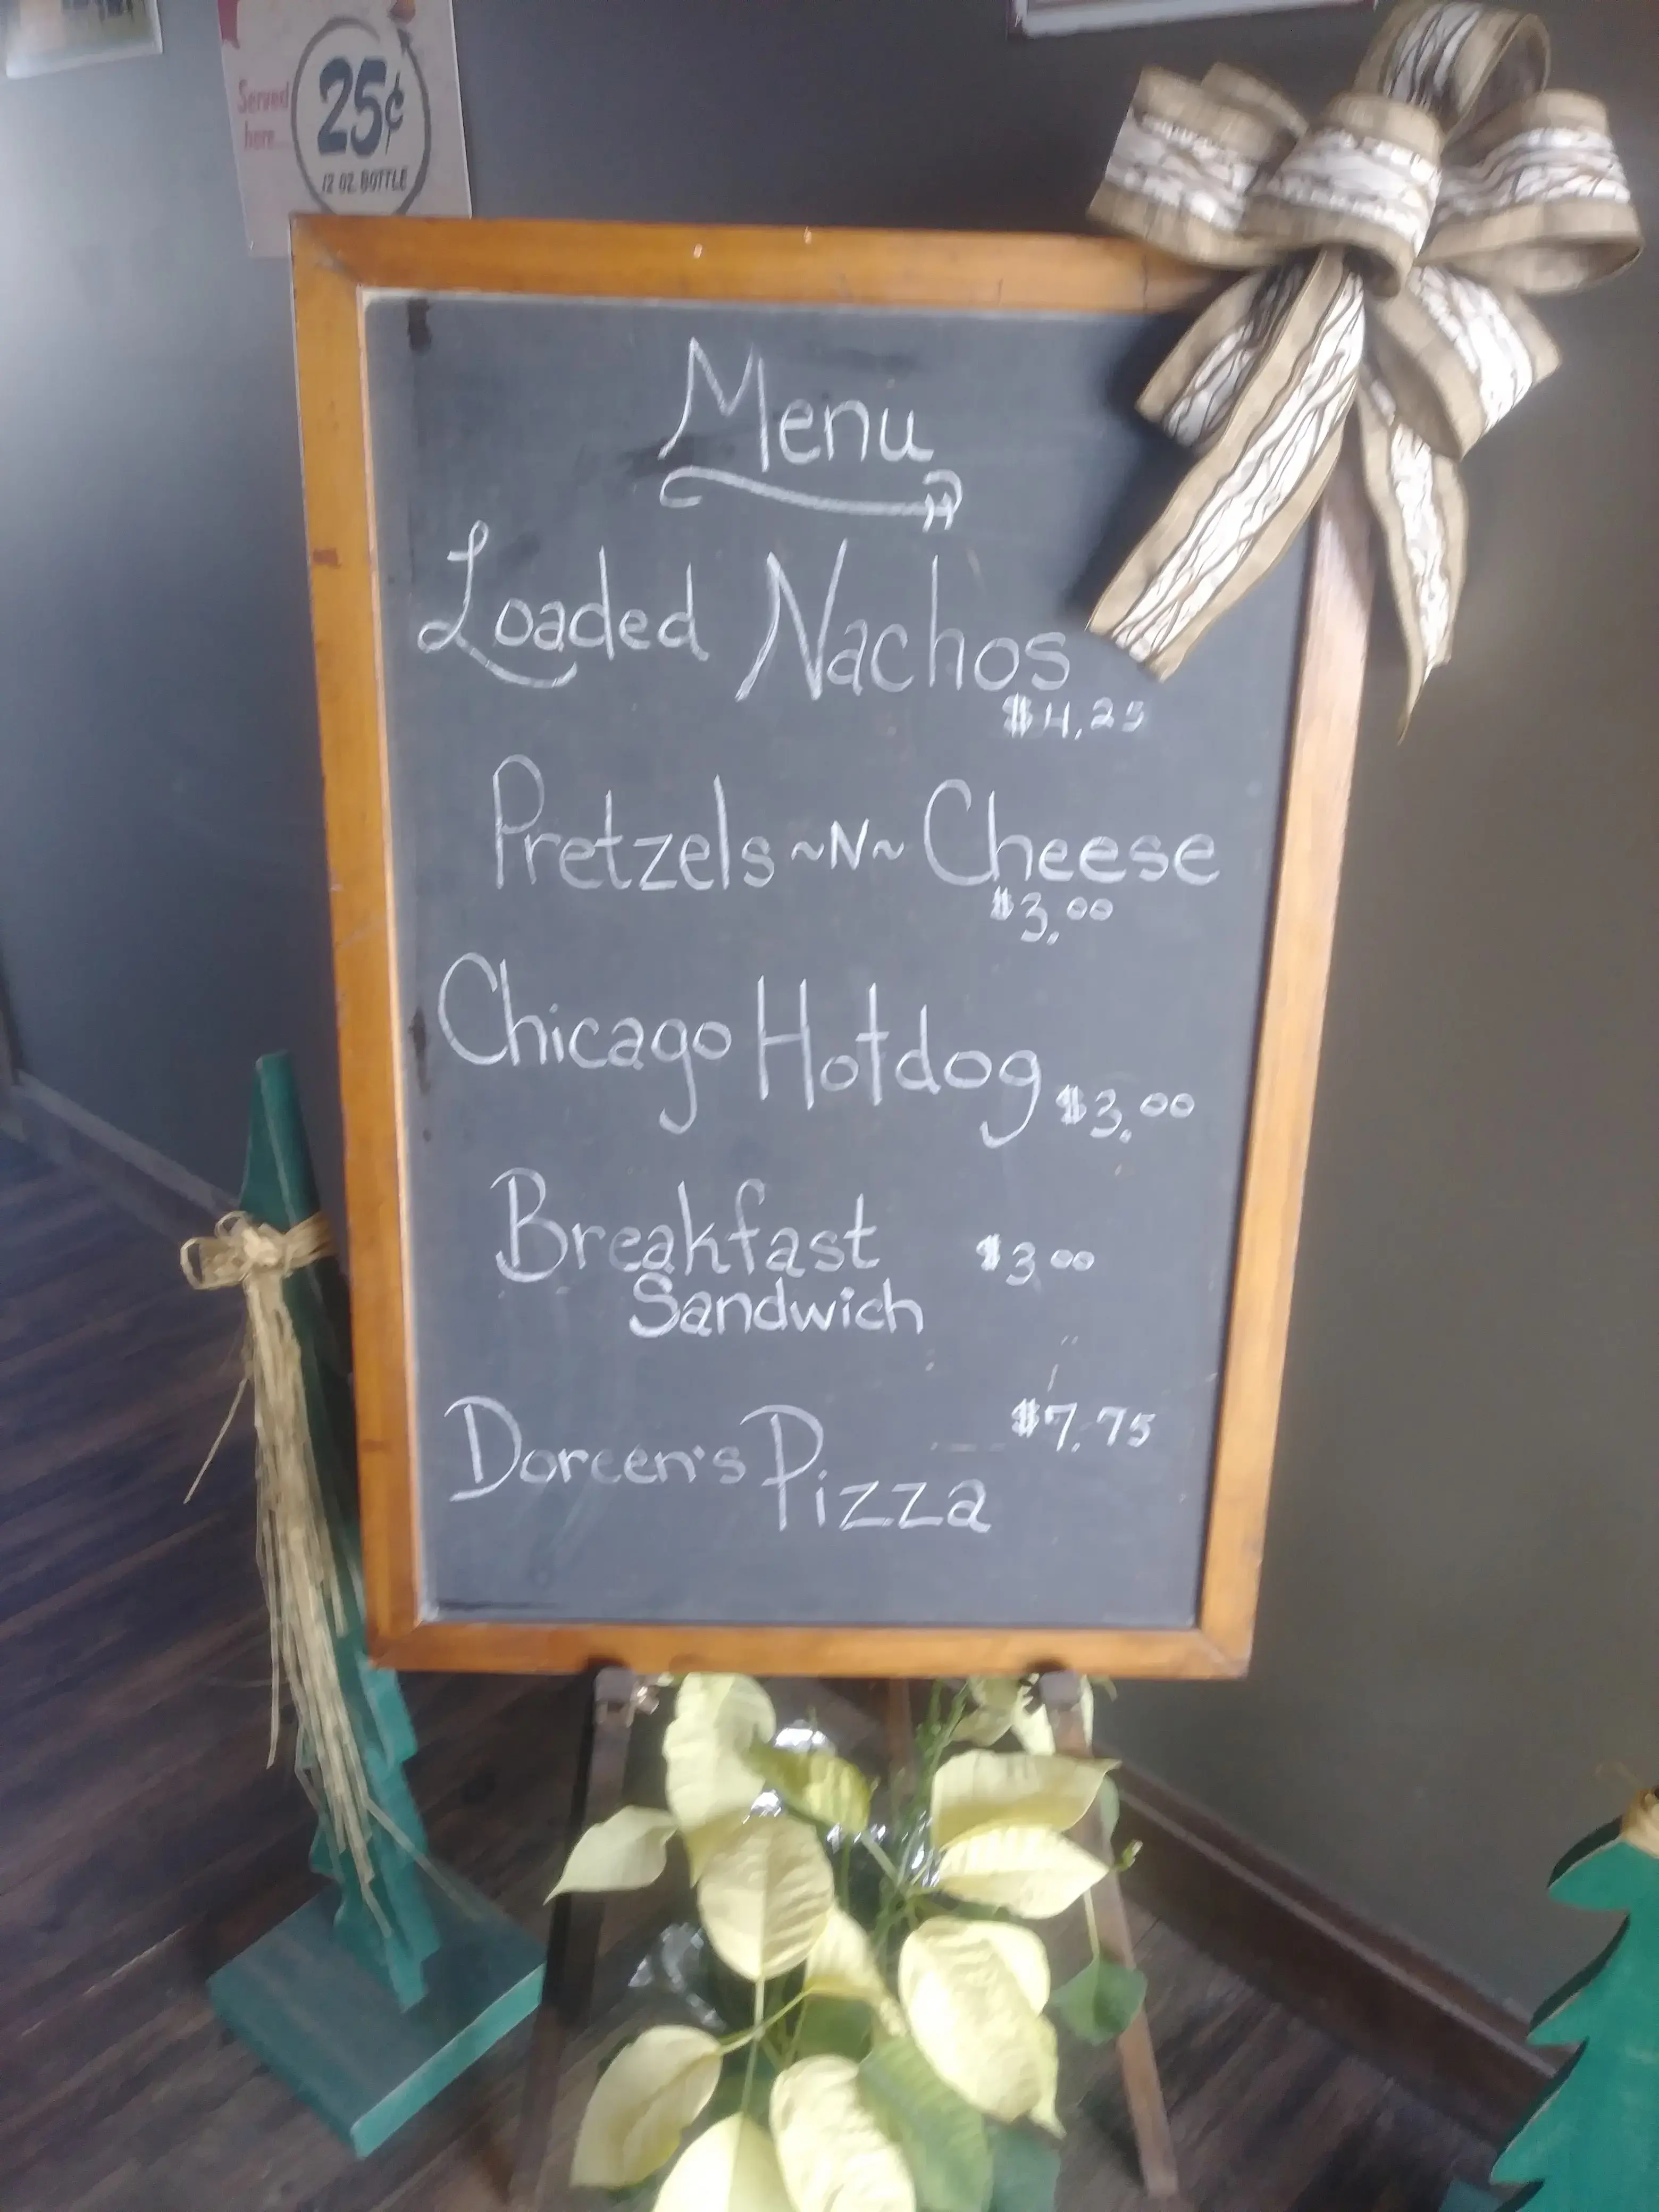 Served
here...
25¢
12 OZ. BOTTLE
Menu
Loaded Nachos
$4.25
Pretzels ~N~ Cheese
$3.00
Chicago Hotdog $3.00
Breakfast $3 00
Sandwich
$7.75
Doreen's Pizza